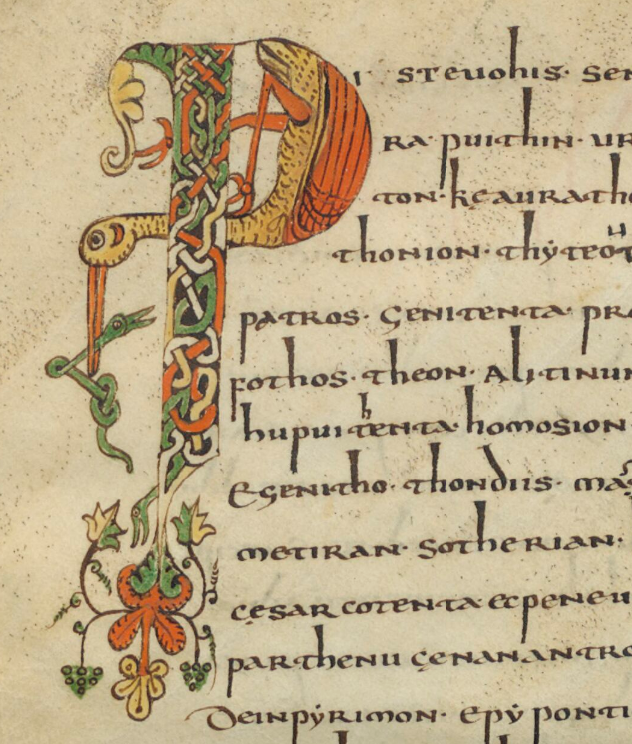 P isteuohis· sen
RA· puithin· ur
TON· kęaurath
thonion· thẏteot
patros· Genitenta· pro
Fothos· theon· Alitinun
hupuithenta· homosion·
Egenitho· thondiis· mas
metiran· sotherian·
cęsar cotenta· ecpeneu
parthenu cęnanantro
Deinpẏrimon· epẏ ponti